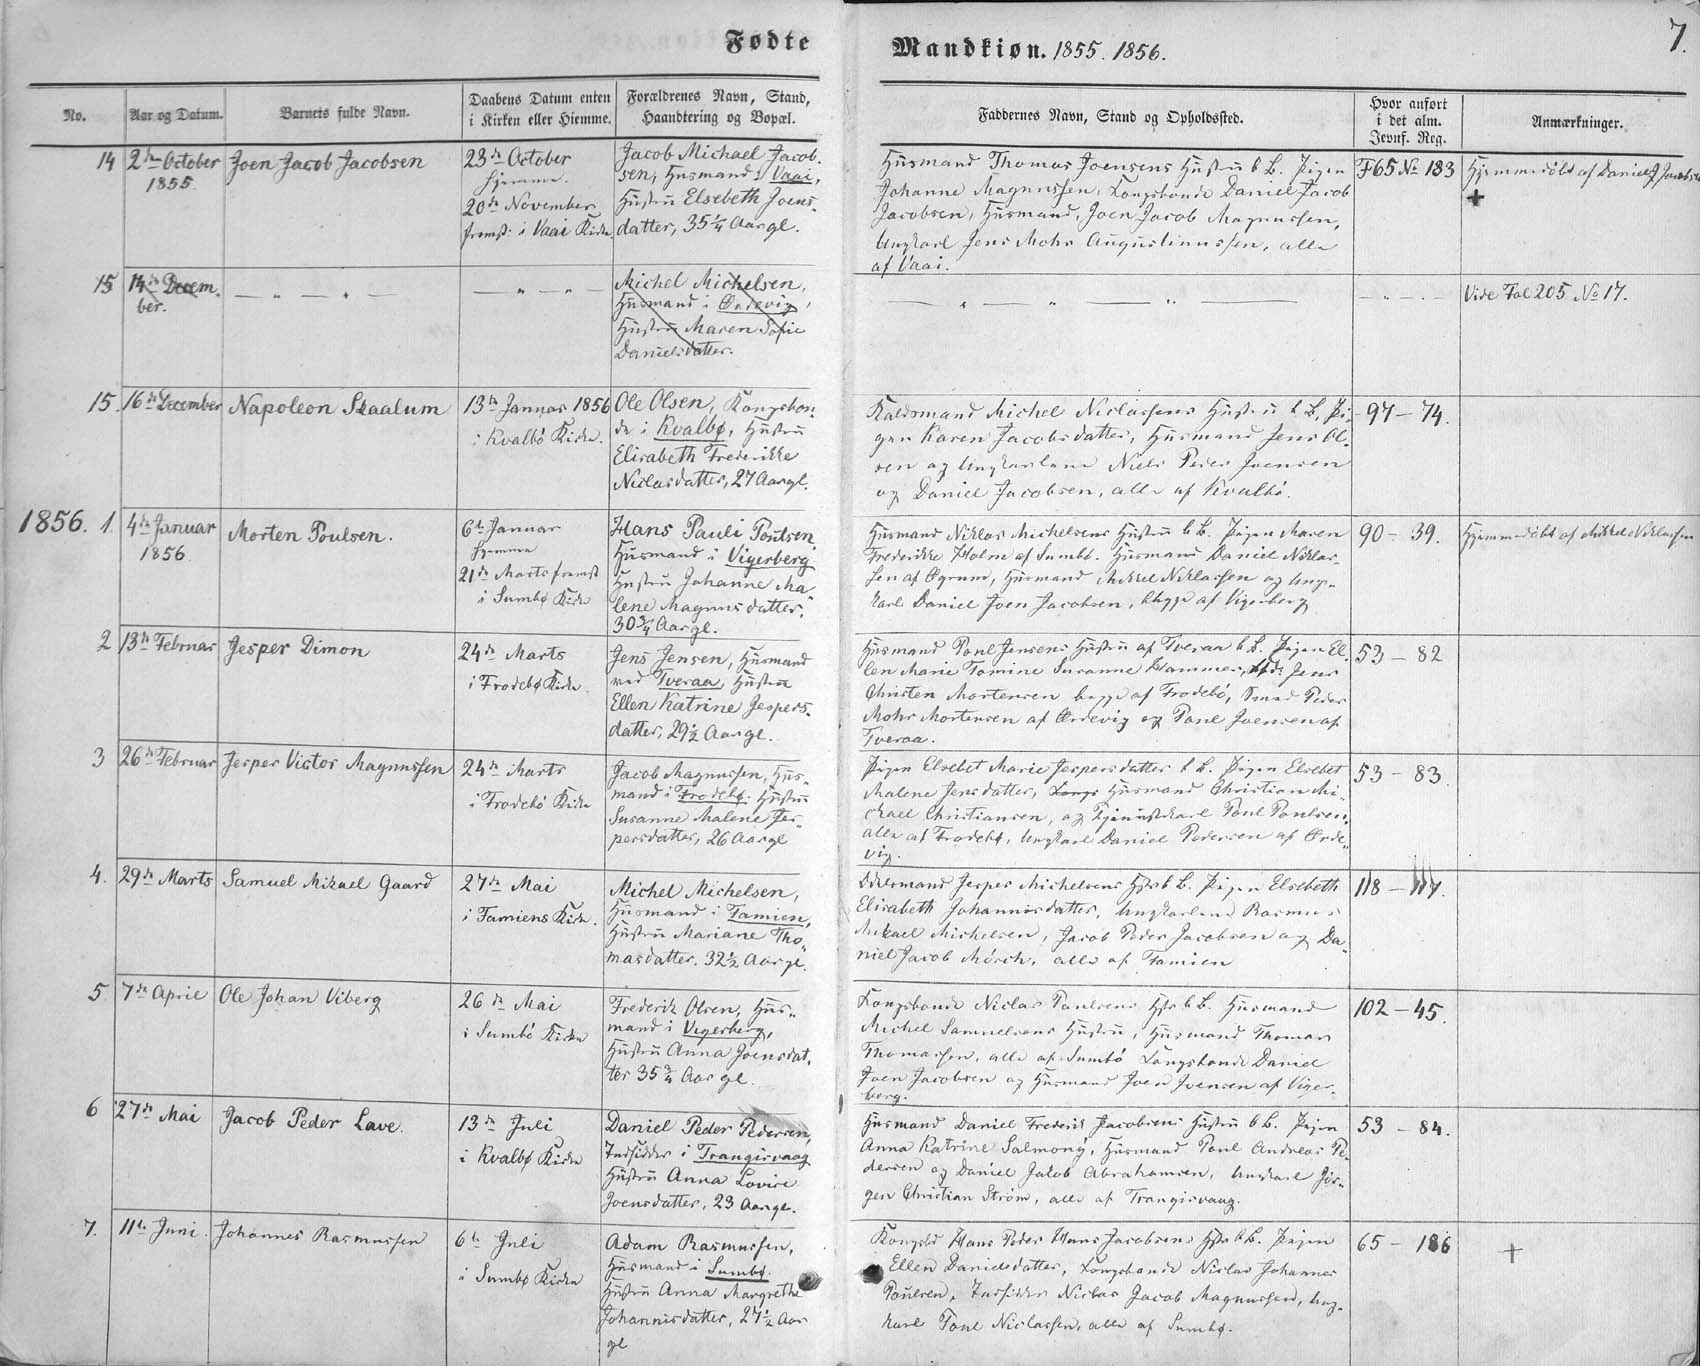 Fødte
Mandkiøn. 1855. 1856.
7.
No.
Aar og Datum.
Barnets fulde Navn.
Daabens Datum enten
i Kirken eller Hiemme.
Forældrenes Navn, Stand,
Haandtering og Bopæl.
Faddernes Navn, Stand og Opholdssted.
Hvor anført
i det alm.
Jevnf. Reg.
Anmærkninger.
14
2den October
1855.
Joen Jacob Jacobsen
23de October
hjemme.
20de November
fremst: i Vaai Kirke.
Jacob Michael Jacob-
sen, Husmand i Vaai,
Hustru Elsebeth Joens-
datter, 35 1/4 Aar gl.
Husmand Thomas Joensens Hustru b. B. Pigen
Johanne Magnussen, Kongsbonde Daniel Jacob
Jacobsen, Husmand, Joen Jacob Magnussen,
Ungkarl Jens Mohr Augustinussen, alle
af Vaai.
F 65 No 183
Hjemmedöbt af Daniel J Jacobsen
+
15
14de Decem-
ber.
— „ — „ —
— „ — „ —
Michel Michelsen,
Husmand i Ördevig,
Hustru Maren Sofie
Danielsdatter.
— „ — „ — „ —
- „ - „ -
Vide Fol 205 No 17.
15.
16de December
Napoleon Skaalum
13de Januar 1856
i Kvalbö Kirke.
Ole Olsen, Kongsbon-
de i Kvalbø, Hustru
Elisabeth Frederikke
Niclasdatter, 27 Aar gl.
Kaldsmand Michel Niclassens Hustru b. B. Pi-
gen Karen Jacobsdatter, Husmand Jens Ol-
sen og Ungkarlene Niels Peder Joensen
og Daniel Jacobsen, alle af Kvalbö.
- 97 - 74.
1856. 1.
4de Januar
1856.
Morten Poulsen.
6te Januar
hjemme
21de Marts fremst
i Sumbø Kirke
Hans Pauli Poulsen
Husmand i Vigerberg
Hustru Johanne Ma-
lene Magnusdatter,
30 3/4 Aar gl.
Husmand Niklas Michelsens Hustru b. B. Pigen Maren
Frederikke Holm af Sumbø. Husmand Daniel Niklas-
sen af Ögrum, Husmand Mikkel Niklassen og Ung-
karl Daniel Joen Jacobsen, begge af Vigerberg
90 - 39.
Hjemmedöbt af Mikkel Niklassen
2
13de Februar
Jesper Dimon
24de Marts
i Frodebø Kirke.
Jens Jensen, Husmand
ved Tveraa, Hustru
Ellen Katrine Jespers-
datter, 29 1/2 Aar gl.
Husmand Poul Jensens Hustru af Tveraa b. B. Pigen El-
len Marie Tomine Susanne Hammer, Jens
Christen Mortensen begge af Frodebö, Smed Peder
Mohr Mortensen af Ördevig og Poul Joensen af
Tveraa.
53 - 82
3
26de Februar
Jesper Victor Magnussen
24de Marts
i Frodebö Kirke
Jacob Magnussen, Hus-
mand i Frodebø. Hustru
Susanne Malene Jes-
persdatter, 26 Aar gl
Pigen Elsebet Marie Jespersdatter b. B. Pigen Elsebet
Malene Jensdatter, Husmand Christian Mi-
chael Christiansen, og Tjenestekarl Poul Poulsen,
alle af Frodebø, Ungkarl Daniel Pedersen af Örde-
vig.
53 - 83.
4.
29de Marts
Samuel Mikael Gaard
27de Mai
i Famiens Kirke.
Michel Michelsen,
Husmand i Famien,
Hustru Mariane Tho-
masdatter. 32 1/2 Aar gl.
Jesper Michelsens Hstr b. B. Pigen Elsebeth
Elisabeth Johannisdatter, Ungkarlene Rasmus
Mikael Michelsen, Jacob Peder Jacobsen og Da-
niel Jacob Mörch, alle af Famien
118 - 117.
5
7de April
Ole Johan Viberg
26de Mai
i Sumbö Kirke
Frederik Olsen, Hus-
mand i Vigerberg,
Hustru Anna Joensdat-
ter 35 3/4 Aar gl.
Kongsbonde Niclas Poulsens Hstr b. B. Husmand
Michel Samuelsens Hustru, Husmand Thomas
Thomassen, alle af Sumbö Kongsbonde Daniel
Joen Jacobsen og Husmand Joen Joensen af Viger-
berg.
102 - 45.
6
27de Mai
Jacob Peder Lave.
13de Juli
i Kvalbø Kirke
Daniel Peder Pedersen,
Indsidder i Trangisvaag
Hustru Anna Lovise
Joensdatter, 23 Aar gl.
Husmand Daniel Frederik Jacobsens Hustru b. B. Pigen
Anna Katrine Salmony, Husmand Poul Andreas Pe-
dersen og Daniel Jacob Abrahamsen, Ungkarl Jör-
gen Christian Ström, alle af Trangisvaag.
53 - 84.
7.
11te Juni.
Johannes Rasmussen
6te Juli
i Sumbø Kirke
Adam Rasmussen,
Husmand i Sumbø.
Hustru Anna Margrethe
Johannisdatter, 27 1/2 Aar
gl
Hans Peder Hans Jacobsens Hstr b. B. Pigen
Ellen Danielsdatter, Kongsbonde Niclas Johannes
Poulsen, Indsidder Niclas Jacob Magnussen, Ung-
karl Poul Niclassen, alle af Sumbø.
65 - 186
+